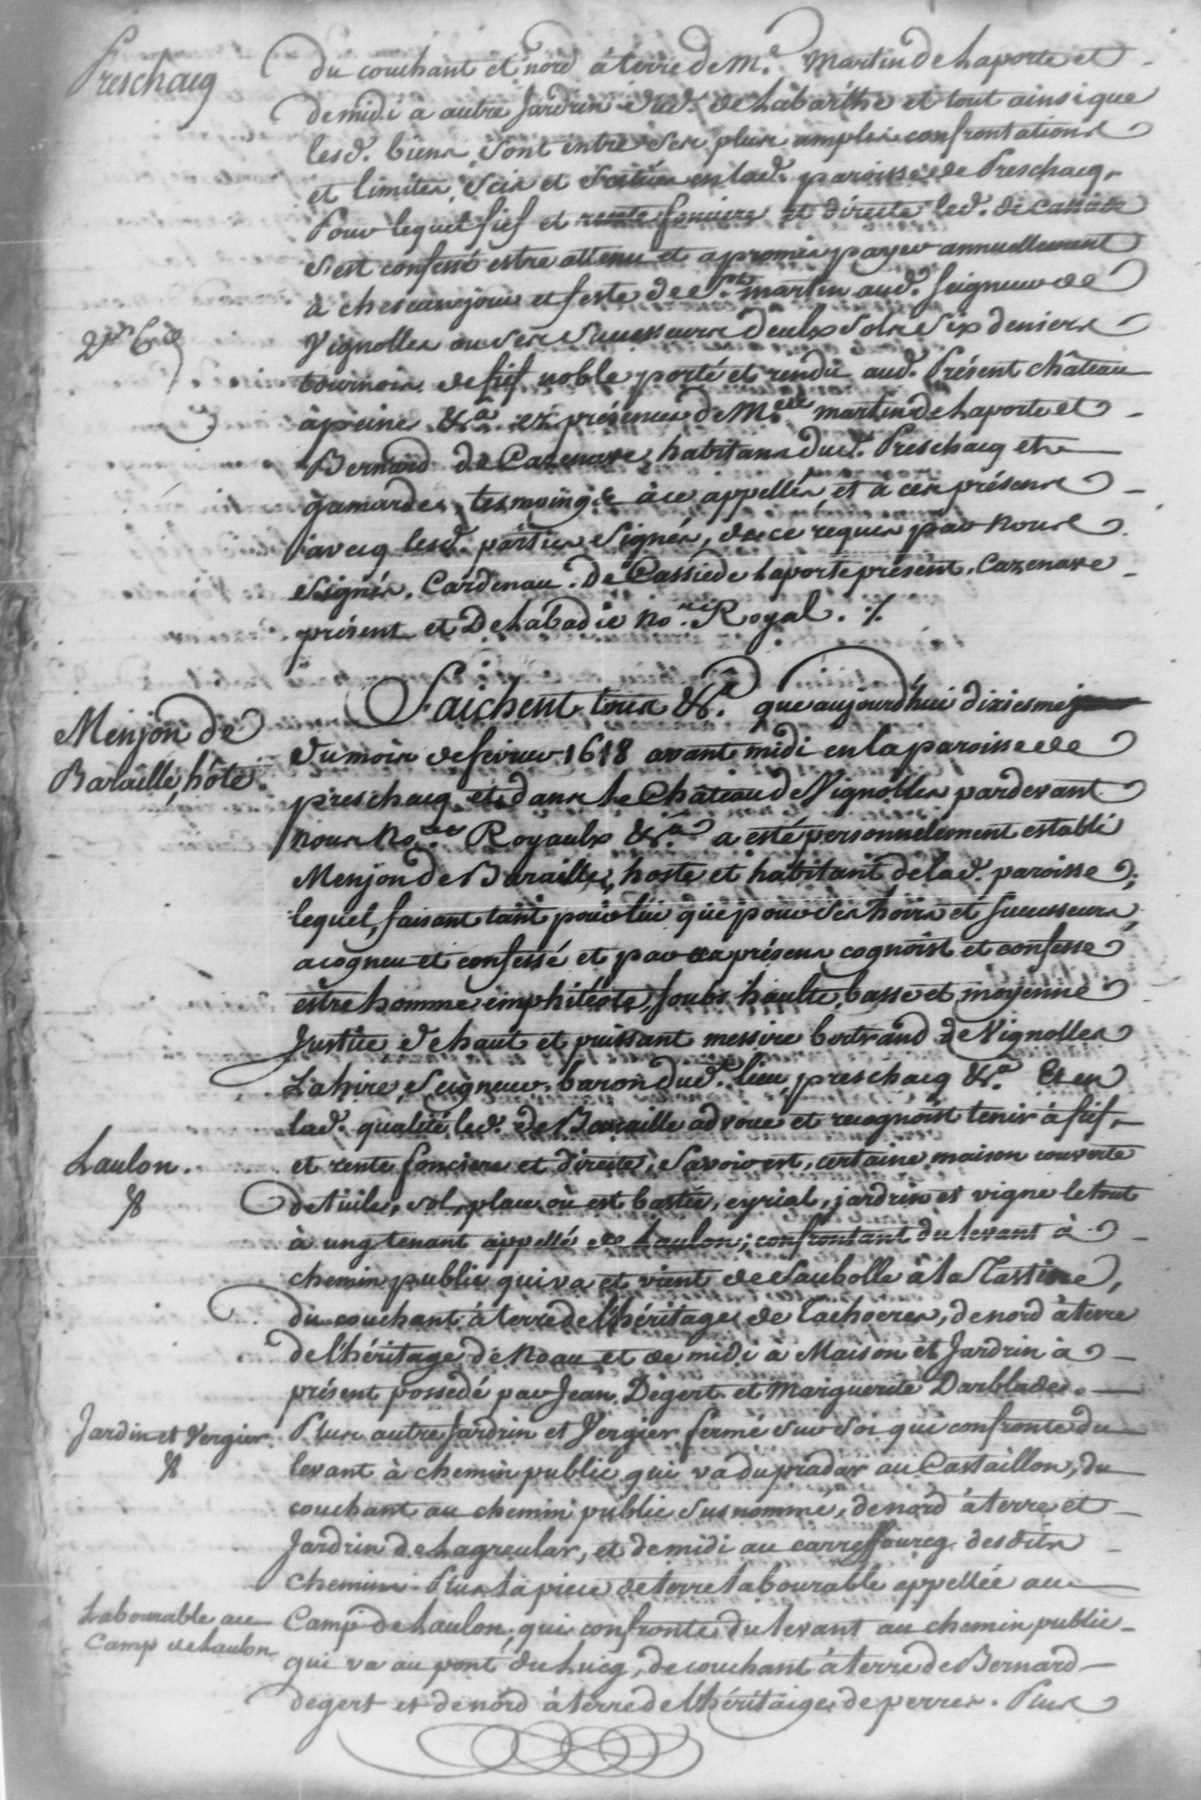 Preschacq
du couchant et nord à terre de Me. Martin de Laporte et
de midi a autre Jardrin dud. de Labarithe et tout ainsi que
lesd. biens sont entre ses plus amples confrontations
et limites, scis et scitués en lad. paroisse de Preschacq,
Pour lequel fief et rente fonciere et directe led. de Cassiede
s'est confessé estre attenu et a promis payer annuellement
à chescun jour et feste de St. martin aud. seigneur de
Vignolles ou ses successeurs deulx sols six deniers
2s. 6d
tournois de fief noble porté et rendu aud. Présent château
à peine &a. ez présence de Me. martin de Laporte et
Bernard de Cazenave, habitans dud. Preschacq et
gamardes, tesmoings à ce appellés et à ces présens
avecq lesd. parties signés, de ce requis par nous
signés. Cardenau. De Cassiede Laporte présent, Cazenave
présent et De Labadie nore. Royal. ./.
Menjon de
Baraille, hôte.
Saichent tous &a. que aujourd'hui dixiesme
du mois de febvrier 1618 avant midi en la paroisse de
preschacq et dans le Château de Vignolles pardevant
nous nores Royaulx &a. a esté personnelement establi
Menjon de Baraille, hoste et habitant de lad. paroisse,
lequel, faisant tant pour lui que pour ses hoirs et successeurs,
a cogneu et confessé et par ces présens cognoist et confesse
estre homme emphitéote, soubs haulte, basse et moyenne
Justice de haut et puissant messire bertrand de Vignolles
Lahire, Seigneur baron dud. lieu, preschacq &a. Et en
lad. qualité led. de Baraille advoue et recognoist tenir à fief,
Laulon.
et rente fonciere et directe, savoir est, certaine maison couverte
de tuile, sol, place où est bastie, eyrial, jardrin et vigne le tout
à ung tenant appellés de Laulon; confrontant du levant à
chemin public qui va et vient de Saubolle à la Tastine,
du couchant à terre de l'héritage de Cachoeres, de nord à terre
de l'héritage de Noau et de midi à Maison et Jardrin à
présent possedé par Jean Dégert et Marguerite Darblades.
Jardin et Vergier
Plus autre Jardrin et Vergier fermé sur soi qui confronte du
levant à chemin public qui va du pradar au Castaillon, du
couchant au chemin public susnommé, de nord à terre et
Jardrin de Lagreular, et de midi au carreffourcq desdits
chemins. Plus la piece de terre labourable appellée au
Labourable au
Camp de Laulon
Camp de Laulon, qui confronte du levant au chemin public
qui va au pont du Lucq, de couchant à terre de Bernard
degert et de nord à terre de l'héritaige de perres. Plus